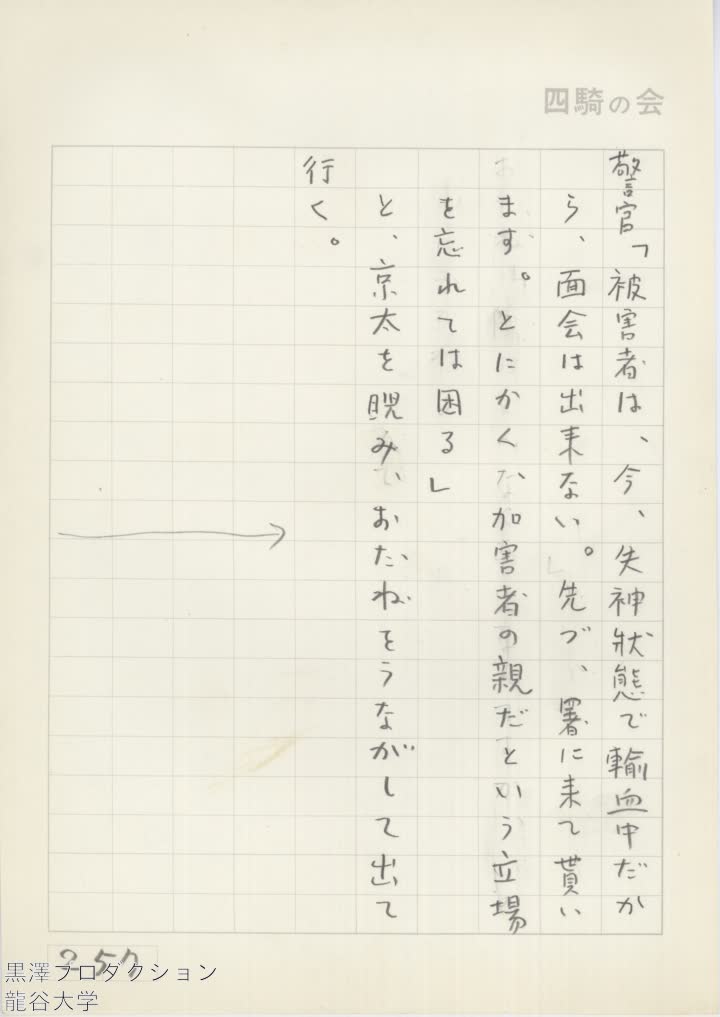 四騎の会
警官「被害者は、今、失神狀態で輸血中だか
ら、面会は出来ない。先づ、署に来て貰い
ます。とにかく、加害者の親だという立場
を忘れては困る」
と、京太を睨み、おたねをうながして出て
行く。
257
黒澤プロダクション
龍谷大学